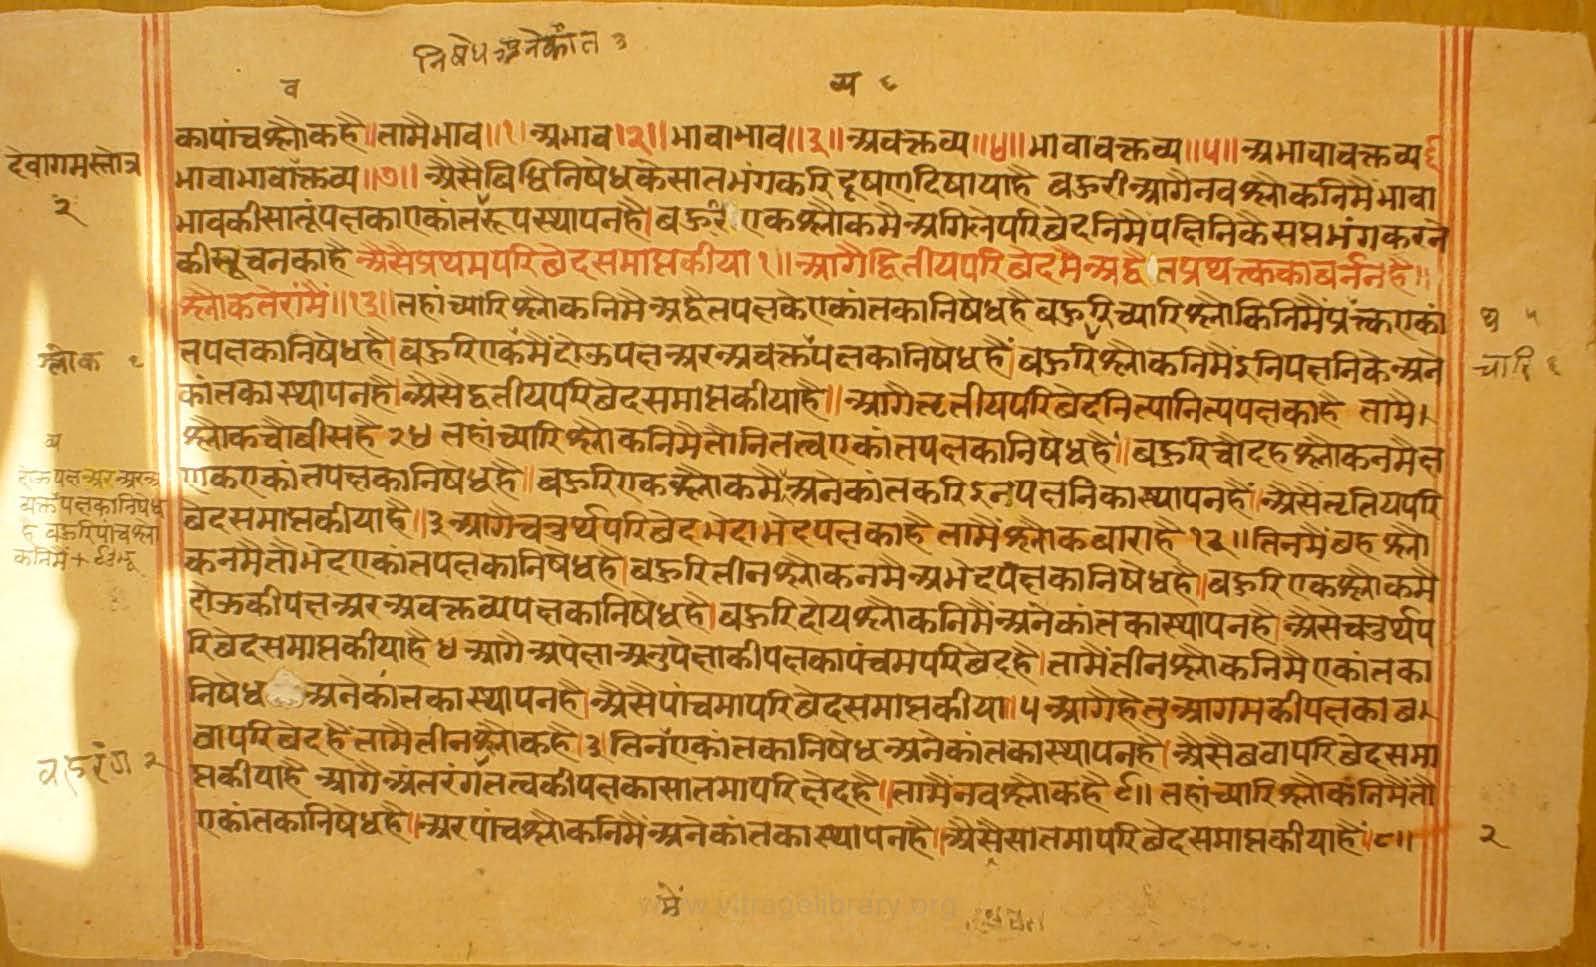 निषेध अनेकांत ३
व
व्य ६
कापांचश्लोकहै॥तामैभाव॥१॥अभाव॥२॥भावाभाव॥३॥अवक्तव्य॥४॥भावावक्तव्य॥५॥अभावावक्तव्य६
देवागमस्तोत्र
२
भावाभावावक्तव्य॥७॥अैसैविधिनिषेधकेसातभंगकरिदूषणदिषायाहै बहुरीआगैनवश्लोकनिमैभावा
भावकीसातूंपक्षकाएकांतरूपस्थापनहै।बहुरिएकश्लोकमैअगिलेपरिछेदनिमैपक्षिनिकैसप्तभंगकरने
कीसूचनकाहै अैसैप्रथमपरिछेदसमाप्तकीया१॥आगैद्वितीयपरिछेदमैअद्वैतप्रथक्त्वकाबर्ननहै॥
श्लोकतेरांमैं॥१३॥तहांच्यारिश्लोकनिमैअद्वैतपक्षकैएकांतकानिषेधहै बहुरिच्यारिश्लोकिनिमैंप्रत्त्कएकां
तपक्षकानिषेधहै।बहुरिएकमैंदोऊपक्षअरअवक्तपक्षकानिषेधहैं।बहुरिश्लोकनिमैंइनिपक्षनिकेअने
श्लोक १
चारि ६
कांतकास्थापनहै।अैसैद्वतीयपरिछेदसमाप्तकीयाहै॥आगैतृतीयपरिछेदनित्यानित्यपक्षकाहै तामै।
श्लोकचौबीसहै२४ तहांच्यारिश्लोकनिमैतौनितत्वएकांतपक्षकानिषेधहै॥बहुरिचौदहश्लोकनमैक्ष
एकएकांतपक्षकानिषेधहै॥बहुरिएकश्लोकमैअनेकांतकरिइनपक्षनिकास्थापनहैं॥अैसैतृतियपरि
व्य
दोऊपक्षअरअरअ
व्यक्तपक्षकानिषेध
है बहुरिपांचश्लो
कनिमैं+
छेदसमाप्तकीयाहै॥३आगैचतुर्थपरिछेदभेदाभेदपक्षकाहै तामैंश्लोकबाराहै१२॥तिनमैंछहश्लो
कनमैतौभेदएकांतपक्षकानिषेधहै।बहुरितीनश्लोकनमैअभेदपक्षकानिषेधहै।बहुरिएकश्लोकमै
दोऊकीपक्षअरअवक्तव्यपक्षकानिषेधहै।बहुरिदोयश्लोकनिमैअनेकांतकास्थापनहै।अैसैचतुर्थप
रिछेदसमाप्तकीयाहै४आगैअपेक्षाअनुपेक्षाकीपक्षकापंचमपरिछेदहै।तामैंतीनश्लोकनिमैएकांतका
निषेध अनेकांतकास्थापनहै।अैसैपांचमापरिछेदसमाप्तकीया॥५आगैहेतुआगमकीपक्षकाछ
वापरिछेदहैंतामैतीनश्लोकहै।३।तिनएकांतकानिषेधअनेकांतकास्थापनहै।अैसैछवापरिछेदसमा
प्तकीयाहै आगैअंतरंगतत्वकीपक्षकासातमापरिछेदहै॥तामैंनवश्लोकहै९॥तहांच्यारिश्लोकनिमैंतौ
वहिरंग २
एकांतकानिषेधहै।अरपांचश्लोकनिमैंअनेकांतकास्थापनहै।अैसैसातमापरिछेदसमाप्तकीयाहैं॥८॥
२
में
www.vitragelibrary.org